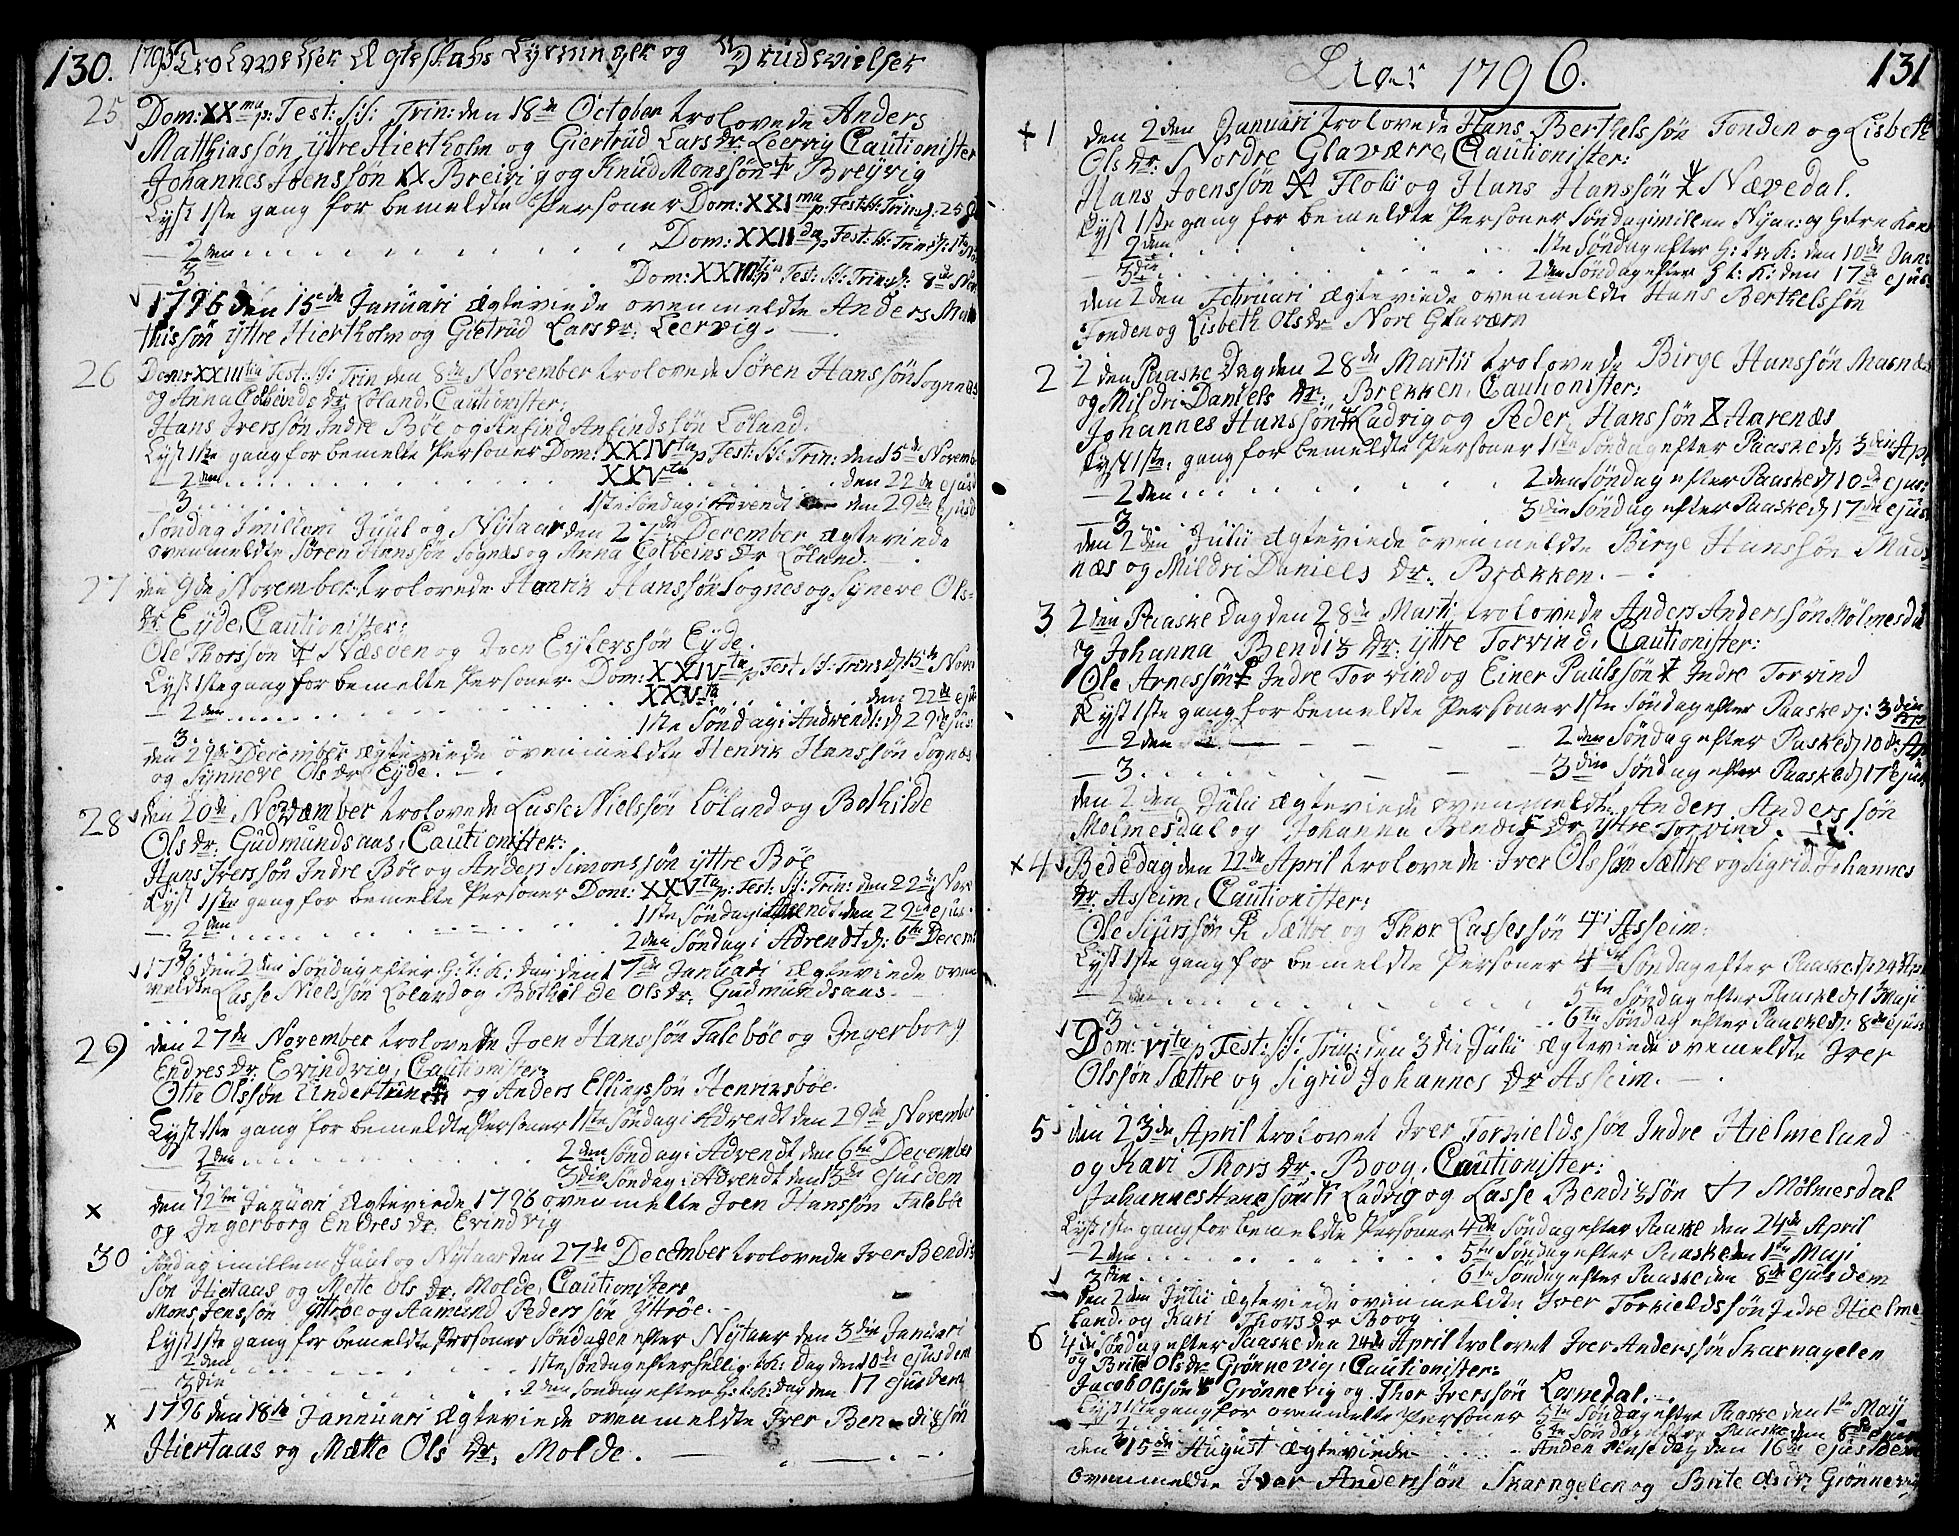 130. 1795 Trolovelser Ægteskabs Lysninger og Brudevielser
25 Dom: XXma p: Fest: S:S: Trin: den 18de October trolovede Anders
Matthiassøn Yttre Hiertholm og Giertrud Lars Dr: Leervig Cautionister
Johannes Joenssøn Breivig og Knud Monssøn Breyvig
Lyst 1ste gang for bemeldte Personer Dom: XXIma p: Fest: S:S: Trin: d: 25
— 2den . . . Dom: XXIIda p Fest: S:S: Trin: d: 1ste
3 . . . Dom: XXIIItia p Fest: S:S: Trin: d: 8de
1796 den 15de Januari ægteviede ovenmeldte Anders Mat
thissøn Yttre Hiertholm og Gietrud Lars Dr: Leervig. —
26 Dom: XXIIItia Fest: S:S: Trin den 8de November trolovede Søren Hanssøn Sognnæs
og Anna Colbeinds Dr. Løland, Cautionister:
Hans Iverssøn Indre Bøe og Anfind Anfindssøn Løland.
Lyst 1ste gang for bemelte Personer Dom: XXIVta p Fest: S:S: Trin: den 15de Novemb
— 2den . . . XXVta . . . den 22de ejusd
3 . . . 1ste Søndag i Advendt den 29de ejusd
Søndag Imillem Juul og Nytaar den 27de December ægteviede
ovenmeldte Søren Hanssøn Sognæs og Anna Colbeins Dr Løland. —
27 den 9de November trolovede Henrik Hanssøn Sognes og Synneve Ols-
Dr. Eyde, Cautionister:
Ole Thorssøn Næsøen og Joen Eylerssøn Eyde.
Lyst 1ste gang for bemelte Personer Dom: XXIVta p Fest S:S: Trin: d: 15de Nove
— 2den . . . XXVta . . . den 22de ejus
3 . . . 1ste Søndag i Andvendt: d 29 ejus
den 29de December ægteviede ovenmeldte Henrik Hanssøn Sognæs
og Synneve Ols Dr Eyde. —
28 den 20de November trolovede Lasse Nielssøn Løland og Bothilde
Ols Dr. Gudmundsaas, Cautionister:
Hans Iverssøn Indre Bøe og Anders Simonssøn Yttre Bøe
Lyst 1ste gang for bemelte Personer Dom: XXVta p: Fest: S:S: Trin: den 22de Nove
— 2den . . . 1ste Søndag i Advendt den 29de ejus.
3 . . . 2den Søndag i Advendt d: 6te Decem
1796 den 2den Søndag efter H: 3: K: Dag den 17de Januari ægteviede oven
meldte Lasse Nielssøn Løland og Bothilde Ols Dr. Gudmundsaas. —
29 den 27de November trolovede Joen Hanssøn Falebøe og Ingerborg
Endres Dr. Evindvig, Cautionister:
Otte Olssøn Undertun og Anders Ellingssøn Henriksbøe.
Lyst 1ste gang for bemeldte Personer 1ste Søndag i Advendt den 29de November
— 2den . . . 2den Søndag i Advendt den 6te December
3 . . . 3die Søndag i Advendt den 13de ejusdem
x den 12te Januari ægteviede 1796 ovenmelte Joen Hanssøn Falebøe
og Ingerborg Endres Dr. Evindvig
30 Søndag imillem Juul og Nytaar den 27de December trolovede Iver Bendix
søn Hiertaas og Mette Ols Dr. Molde, Cautionister
Mons Jenssøn Yttrøe og Aamund Pederssøn Yttrøe. —
Lyst 1ste gang for bemeldte Personer Søndagen efter Nytaar den 3die Januari
— 2den . . . 1ste Søndag efter hellig: 3: K: Dag den 10de ejusdem
3die . . . 2den Søndag efter H: 3: K: Dag den 17 ejusdem
x 1796 den 18de Jannuari ægteviede ovenmeldte Iver Bendixsøn
Hiertaas og Mætte Ols Dr. Molde. —
Aar 1796. 131
+ 1 den 2den Januari trolovede Hans Berthelssøn Fonden og Lisbeth
Ols Dr: Nordre Glaværre, Cautionister:
Hans Joenssøn Floli og Hans Hanssøn Nævedal.
Lyst 1ste gang for bemeldte Personer Søndag imillem Nyaar og
— 2den . . . 1ste Søndag efter H: tr: K: den 10de Jan:
3die . . . 2den Søndag efter H t: K: den 17de ejus
den 2den Februari ægteviede ovenmeldte Hans Berthelssøn
Fonden og Lisbeth Ols Dr Nore Glaværn
2 2den Paaske Dag den 28de Martii trolovede Birge Hanssøn Masnæs
og Mildri Daniels Dr. Brekken, Cautionister:
Johannes Hanssøn Ladvig og Peder Hanssøn Aarenæs
Lyst 1ste gang for bemeldte Personer 1ste Søndag efter Paaske d: 3die Apr
— 2den . . . 2den Søndag efter Paaske d 10de ejus:
— 3 . . . 3die Søndag efter Paaske d 17de ejus
den 2den Julii ægteviede ovenmeldte Birge Hanssøn Mads
næs og Mildri Daniels Dr. Brækken. —
3 2den Paaske Dag den 28de Marti trolovede Anders Anderssøn Mølmesdal
og Johanna Bendix Dr: Yttre Torvind, Cautionister:
Ole Arnessøn Indre Torvind og Einer Paulssøn Indre Torvind
Lyst 1ste gang for bemeldte Personer 1ste Søndag efter Paaske d: 3die Apr
— 2den — — — 2den Søndag efter Paaske d 10de Ap
— 3 . . . 3die Søndag efter Paaske d 17de ejus
den 2den Julii ægteviede ovenmeldte Anders Anderssøn
Molmesdal og Johanna Bendix Dr Yttre Torvind. —
x 4 Bededag den 22de April trolovede Iver Olssøn Sættre og Sigrid Johannes
Dr. Asseim, Cautionister:
Ole Siurssøn Sættre og Thor Lassessøn Asseim.
Lyst 1ste gang for bemeldte Personer 4de Søndag efter Paaske d: 24 Apr
— 2den . . . 5te Søndag efter Paaske d 1ste Maji
3 . . . 6te Søndag efter Paaske d: 8de ejus
Dom: VIta p Fest: S:S: Trin: den 3die Julii ægteviede ovenmeldte Iver
Olssøn Sættre og Sigrid Johannes Dr Asseim. —
5 den 23de April trolovet Iver Torkieldssøn Indre Hielmeland
og Kari Thors Dr. Boog, Cautionister:
Johannes Hanssøn Ladvig og Lasse Bendixsøn Mølmesdal
Lyst 1ste gang for bemeldte Personer 4de Søndag efter Paaske den 24de April
— 2den . . . 5te Søndag efter Paaske den 1ste Maji
3die . . . 6te Søndag efter Paaske den 8de ejusdem
den 2den Julii ægteviede ovenmeldte Iver Torkieldssøn Indre Hielme
land og Kari Thors Dr Boog
6 4de Søndag efter Paaske den 24de April trolovet Iver Anderssøn Skarnagelen
og Brite Ols Dr Grønnevig, Cautionister:
Jacob Olssøn Grønnevig og Thor Iverssøn Lonnedal. —
Lyst 1ste gang for ovenmelte Personer 5te Søndag efter Paaske den 1ste Maij
2 . . . 6te Søndag efter Paaske den 8de ejus
3 . . . Anden Pinse dag den 16de ejusdem
den 15de August ægteviede
ovenmeldte Iver Anderssøn Skarngelen og Brite Ols dr Grønnevig